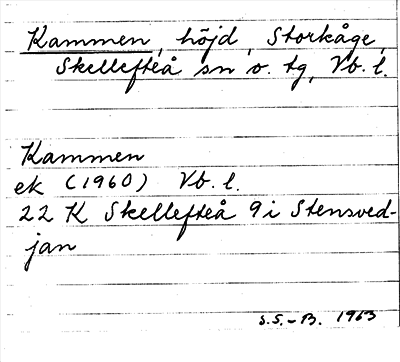 Kammen, höjd, Storkåge,
Skellefteå sn o. tg, Vb. l.
Kammen
ek (1960) Vb. l.
22 K Skellefteå 9i Stensved-
jan
S.S.-B. 1963